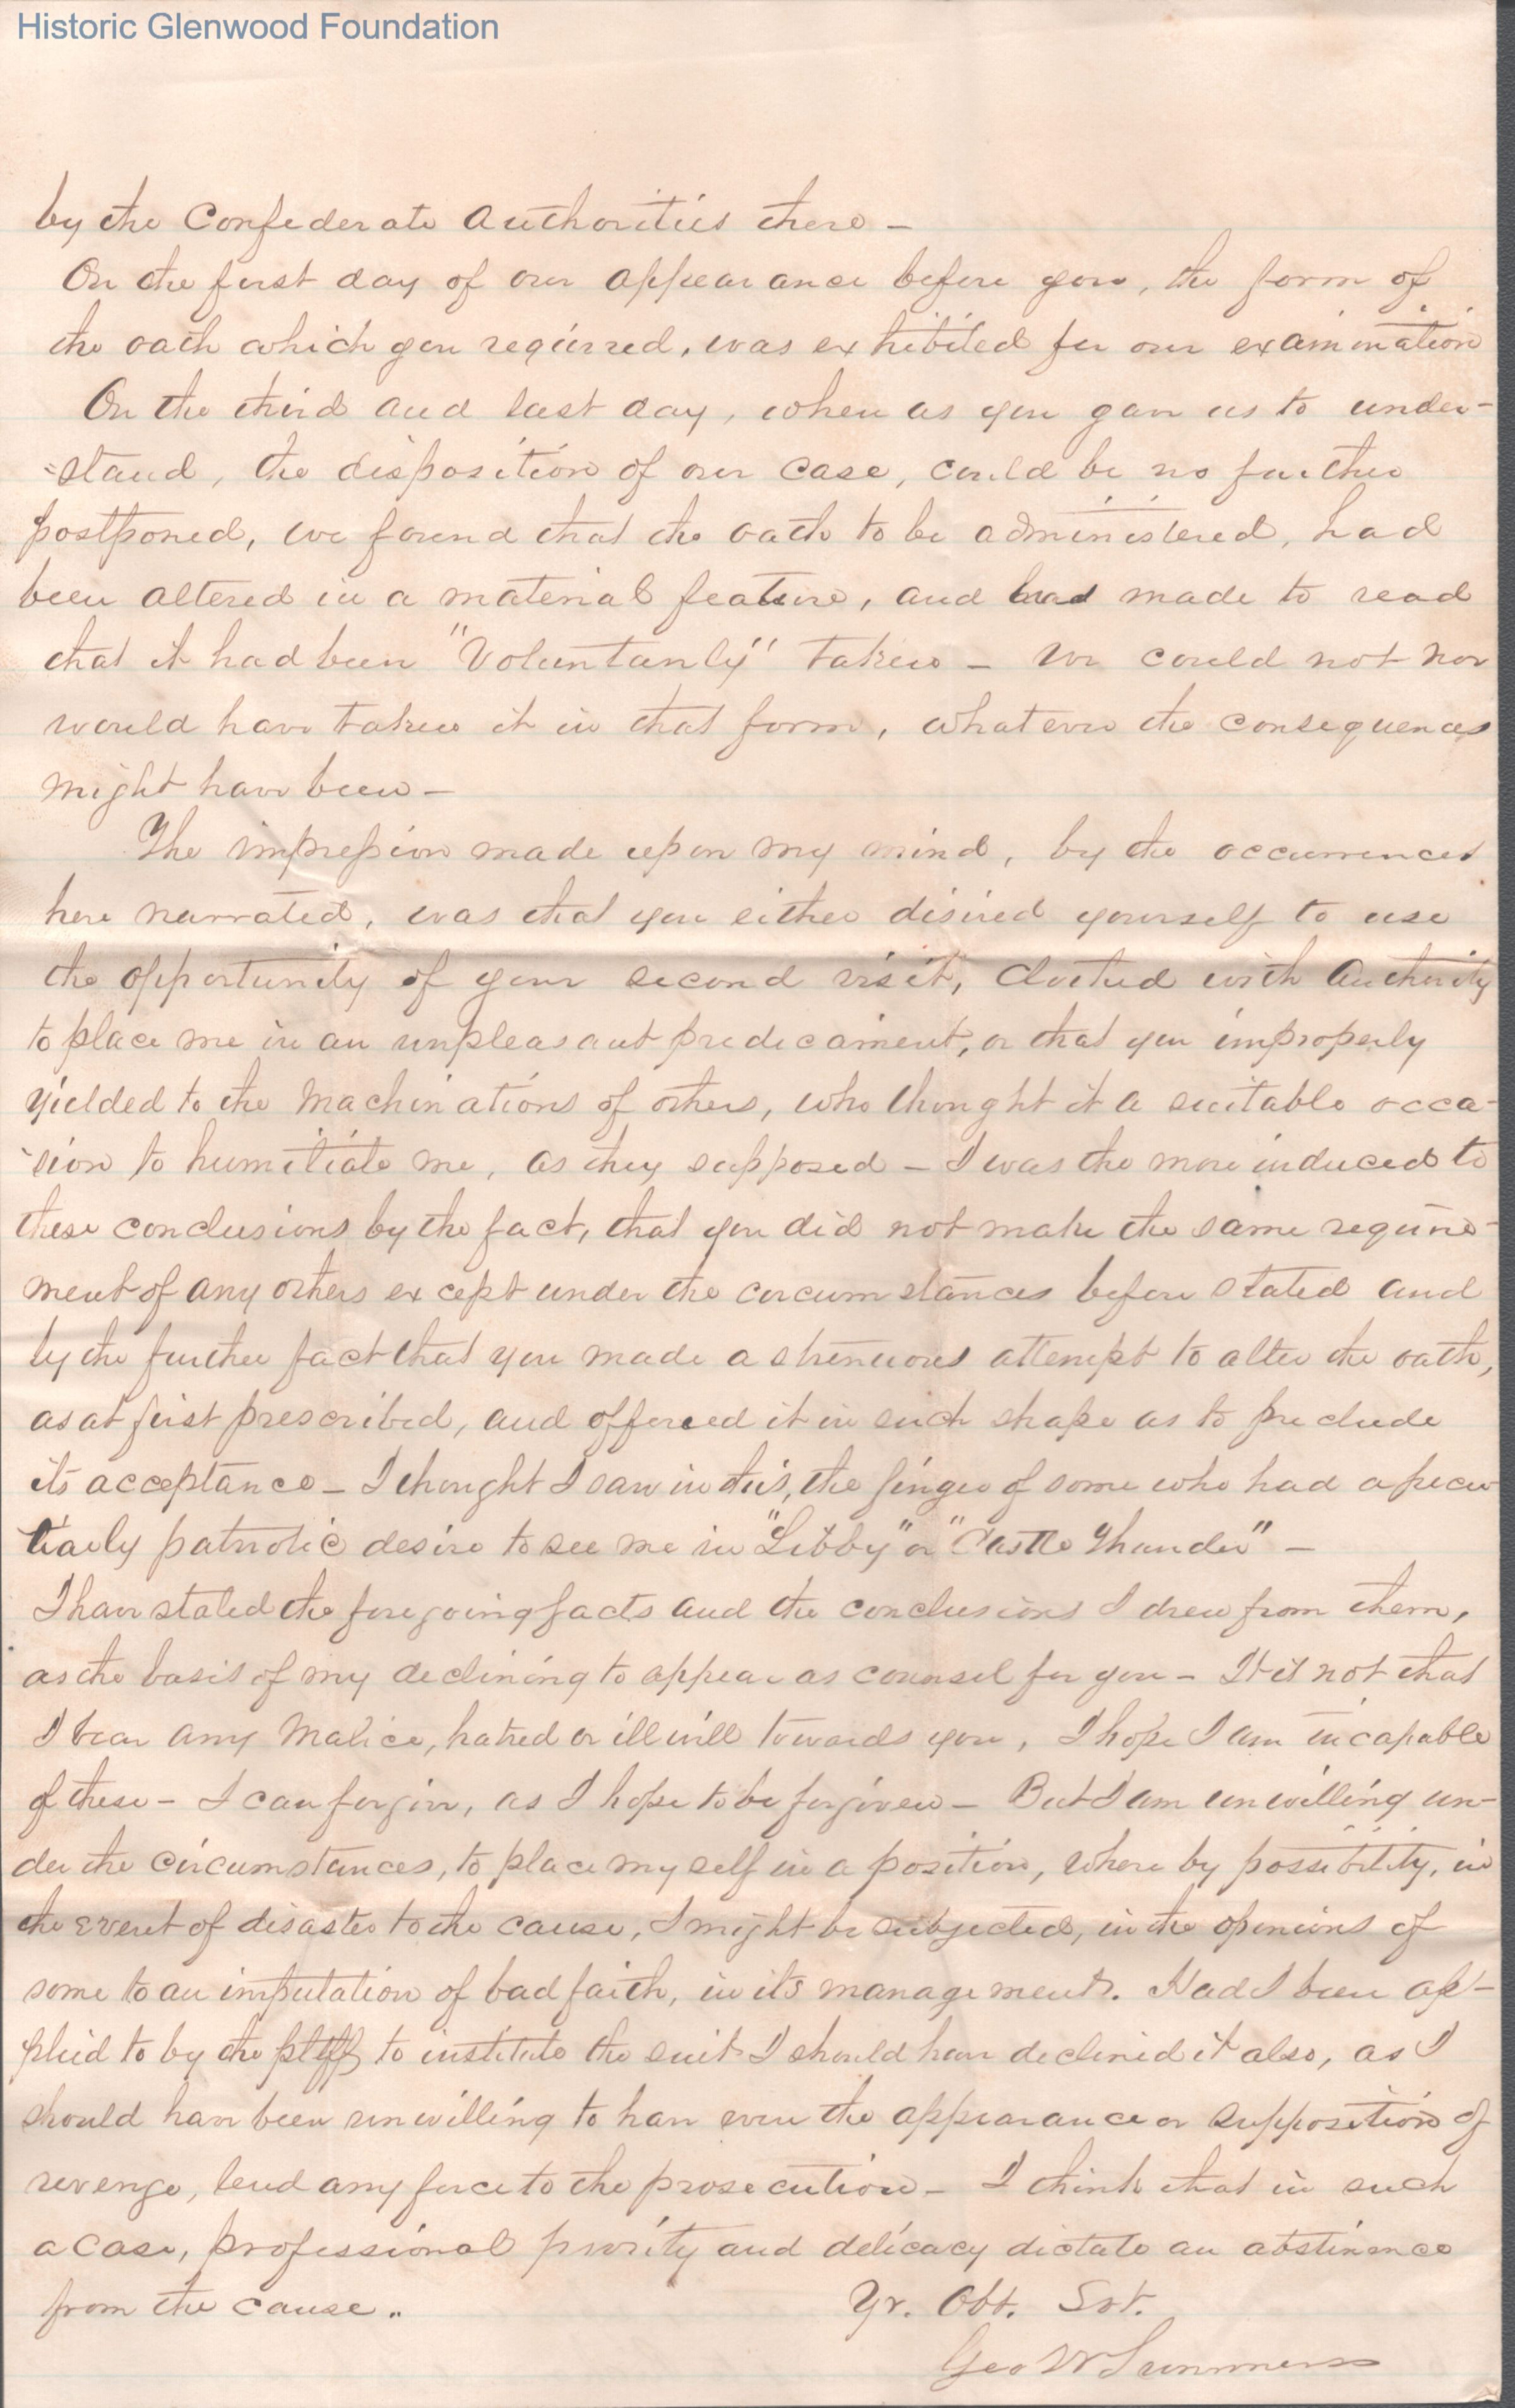 Historic Glenwood Foundation
by the Confederate Authorities there –
On the first day of our appearance before you, the form of
the oath which you required, was exhibited for our examination
On the third and last day, when as you gave us to under-
=stand, the disposition of our case, could be no further
postponed, we found that the oath to be administered, had
been altered in a material feature, and was made to read
that it had been "Voluntarily" taken – We could not nor
would have taken it in that form, whatever the consequences
might have been –
The impression made upon my mind, by the occurrences
here narrated, was that you either desired yourself to use
the opportunity of your second visit, clothed with authority
to place me in an unpleasant predicament, or that you improperly
yielded to the machinations of others, who thought it a suitable occa-
-sion to humiliate me, as they supposed – I was the more induced to
these conclusions by the fact, that you did not make the same require-
ment of any others except under the circumstances before stated and
by the further fact that you made a strenuous attempt to alter the oath,
as at first prescribed, and offered it in such shape as to preclude
its acceptance – I thought I saw in this, the finger of some who had a pecu
liarly patriotic desire to see me in "Libby" or "Castle Thunder" –
I have stated the foregoing facts and the conclusions I drew from them,
as the basis of my declining to appear as counsel for you – It is not that
I bear any malice, hatred or ill will towards you, I hope I am incapable
of these – I can forgive, as I hope to be forgiven – But I am unwilling un-
der the circumstances, to place myself in a position, where by possibility, in
the event of disaster to the cause, I might be subjected, in the opinions of
some to an imputation of bad faith, in its management. Had I been ap-
plied to by the pltff to institute the suit I should have declined it also, as I
should have been unwilling to have even the appearance or supposition of
revenge, lend any force to the prosecution – I think that in such
a case, professional purity and delicacy dictate an abstinence
from the cause.. Yr. Obt. Svt.
Geo W Summers